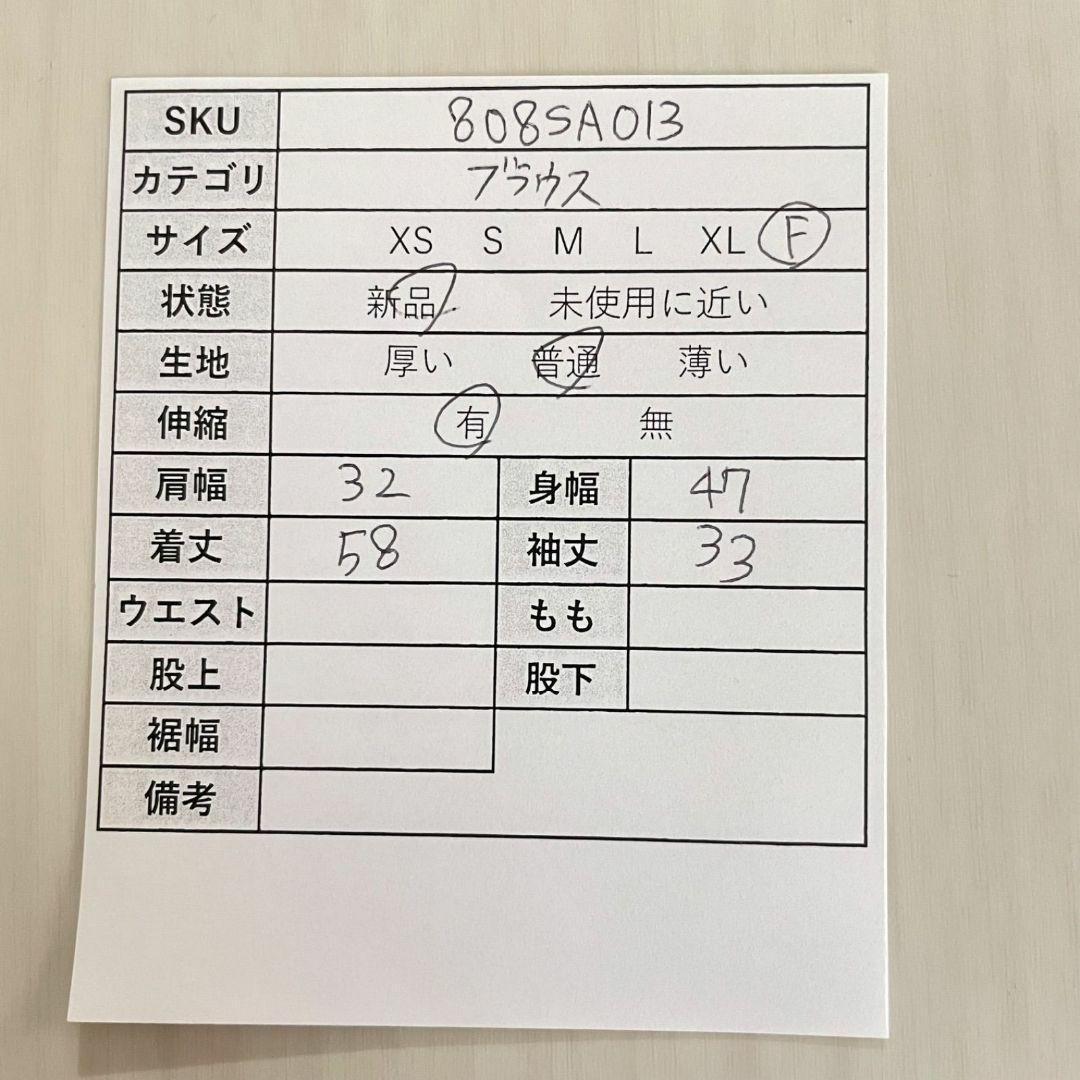 SKU 808SA013
カテゴリ ブラウス
サイズ XS S M L XL F
状態 新品 未使用に近い
生地 厚い 普通 薄い
伸縮 有 無
肩幅 32 身幅 47
着丈 58 袖丈 33
ウエスト もも
股上 股下
裾幅
備考